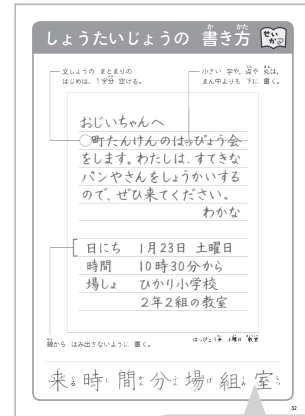 しょうたいじょうの 書き方
せいか
文しょうの まとまりの
はじめは、1字分 空ける。
小さい 字や、点や 丸は、
まん中よりも 下に 書く。
おじいちゃんへ
町たんけんのはっぴょう会
をします。わたしは、すてきな
パンやさんをしょうかいする
ので、ぜひ来てください。
わかな
日にち 1月23日 土曜日
時間 10時30分から
場しょ ひかり小学校
2年2組の教室
線から はみ出さないように 書く。
来 時 間 分 場 組 室
32